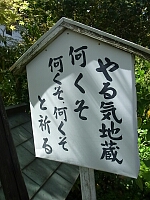 やる気地蔵
何くそ
何くそ何くそ
と祈る